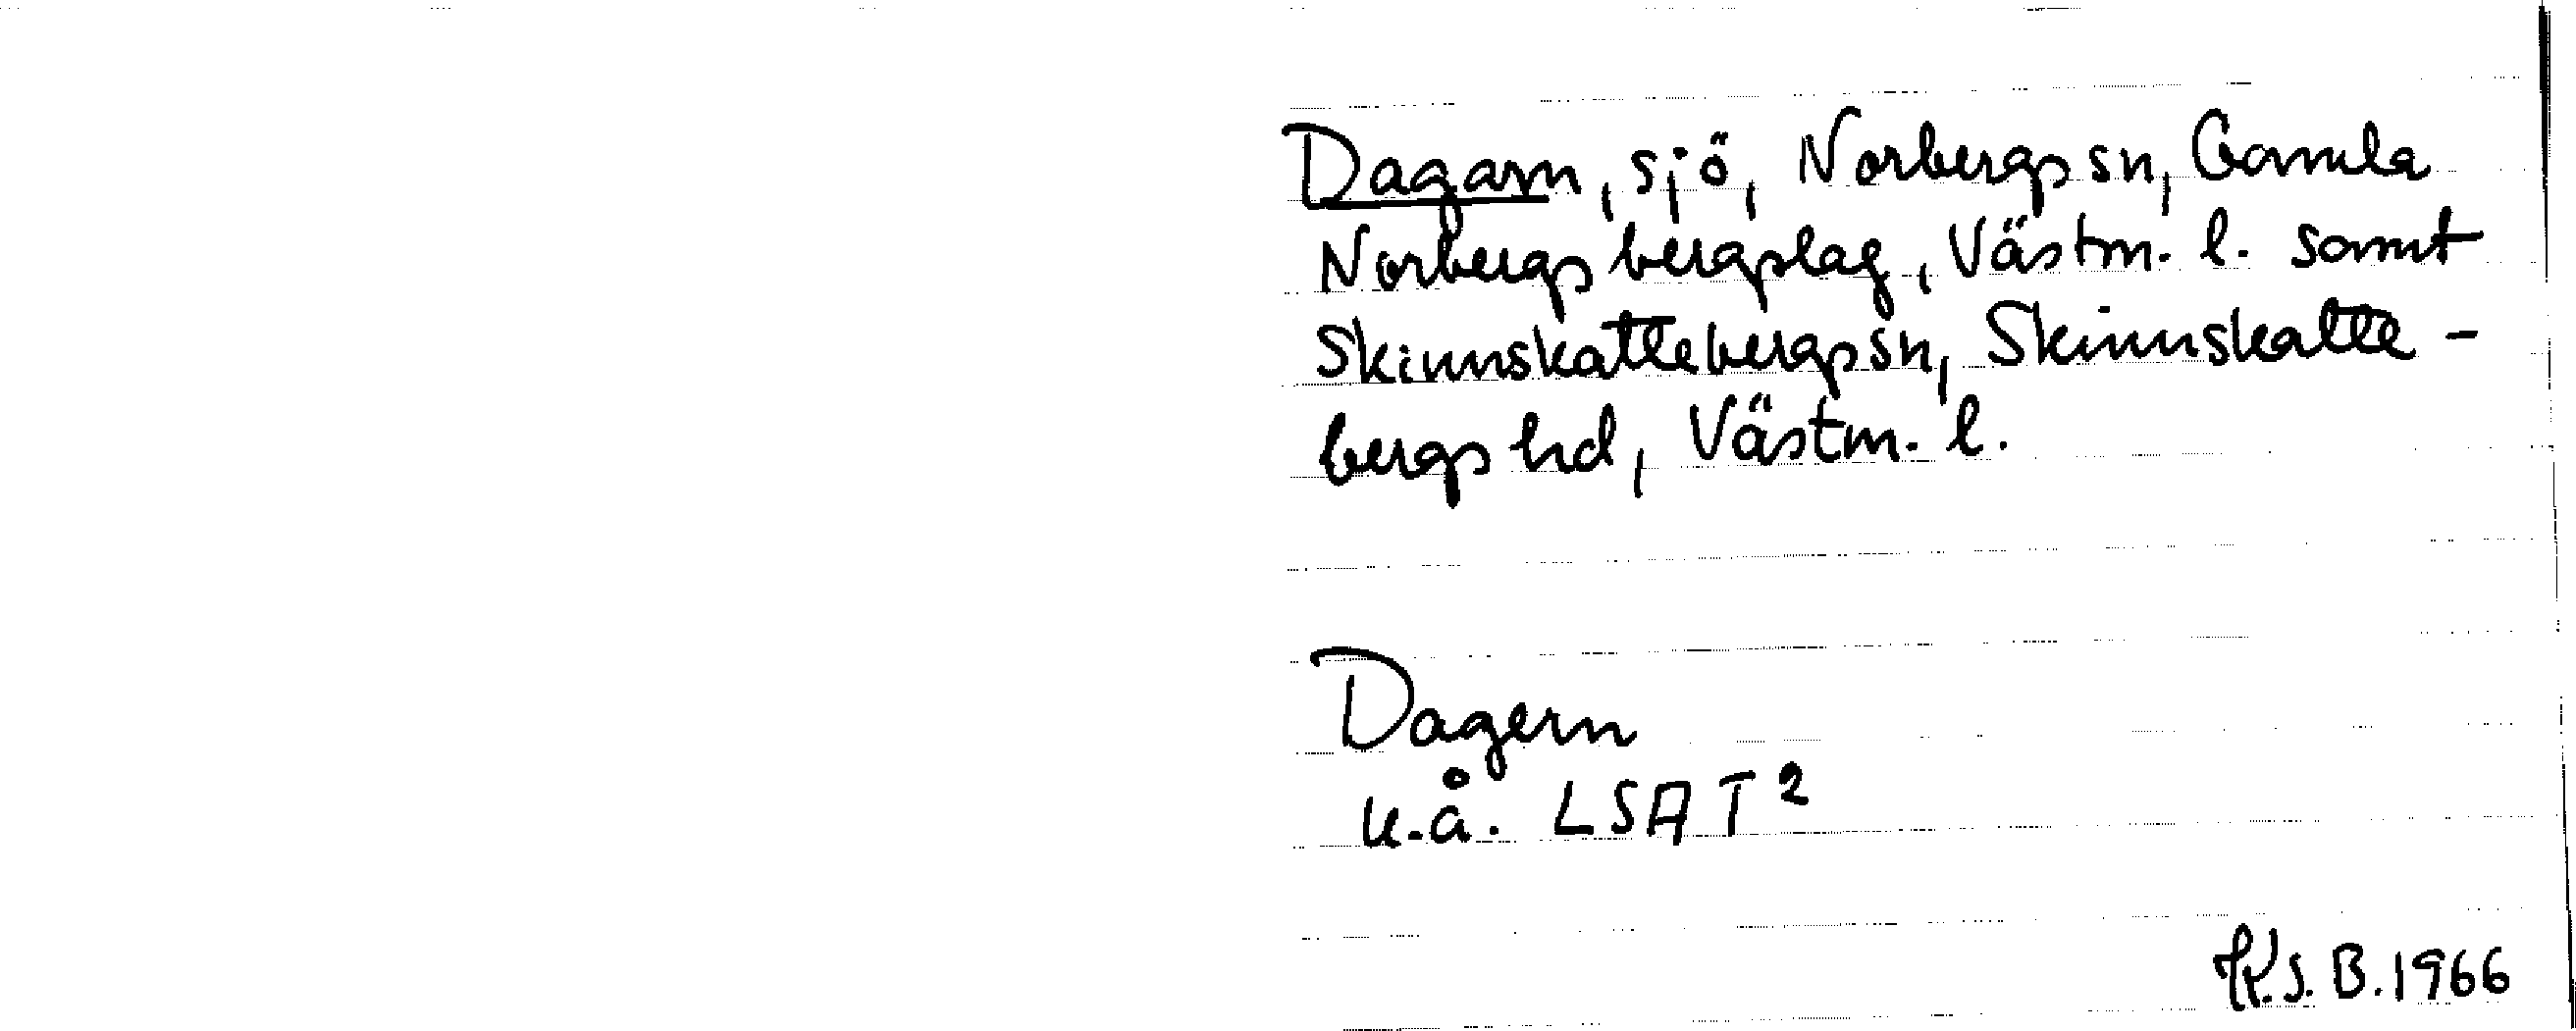 Dagarn, sjö, Norbergs sn, Gamla
Norbergs bergslag, Västm. l. samt
Skinnskattebergs sn, Skinnskatte-
bergs hd, Västm. l.
Dagern
u.å. LSA T2
K.J.B. 1966